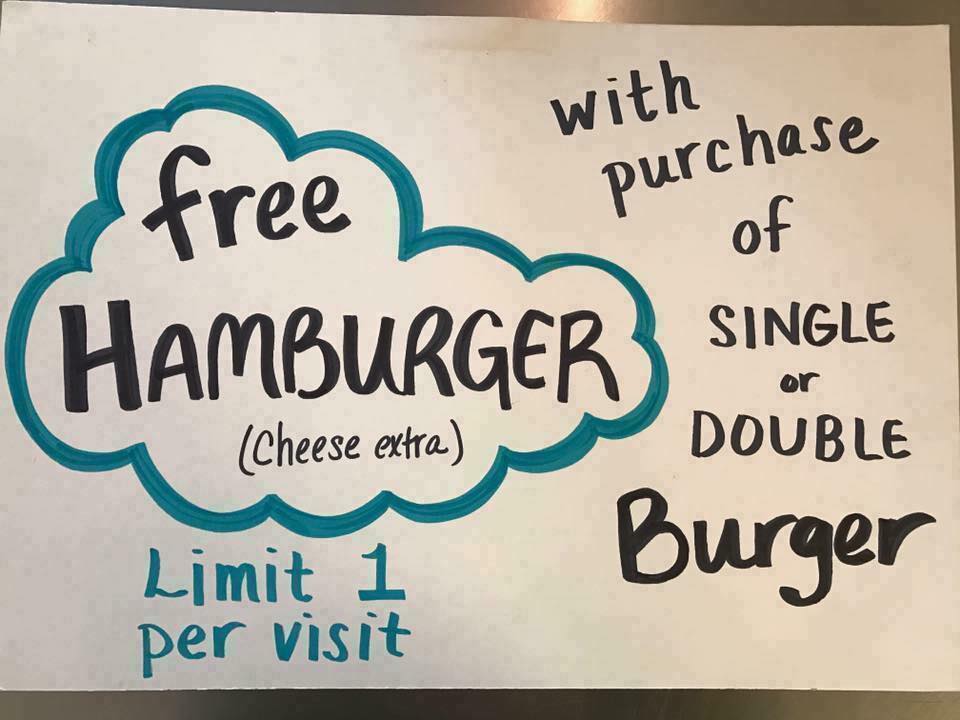 free
HAMBURGER
(Cheese extra)
Limit 1
per visit
with
purchase
of
SINGLE
or
DOUBLE
Burger